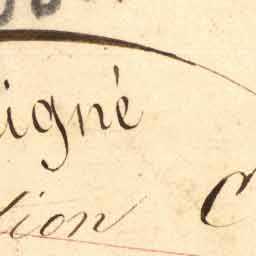 igné
tion C